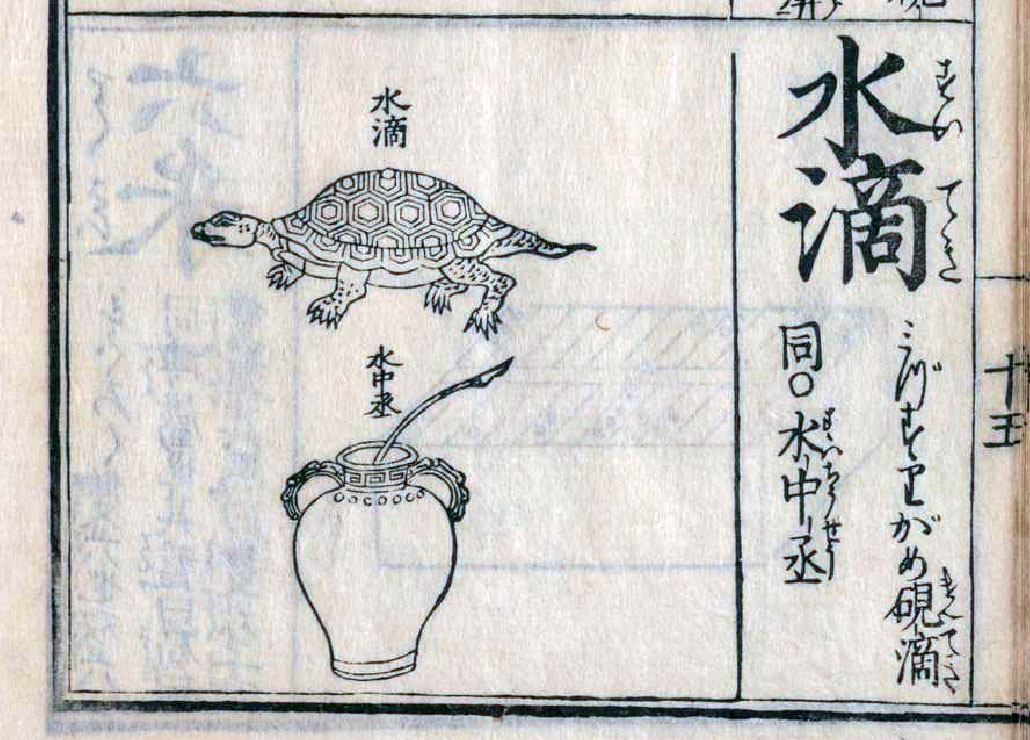 水滴
すいてき
がめ硯滴
けんてき
同○水中丞
すいちうせう
十五
水滴
水中丞